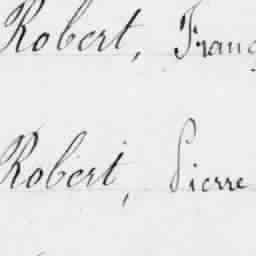 Robert, Franç
Robert, Pierre